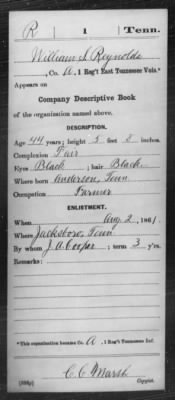 R | 1 | Tenn.
William S Reynolds
, Co. A, 1 Reg't East Tennessee Vols.*
Appears on
Company Descriptive Book
of the organization named above.
DESCRIPTION.
Age 44 years; height 5 feet 8 inches.
Complexion Fair
Eyes Black; hair Black
Where born Anderson, Tenn
Occupation Farmer
ENLISTMENT.
When Aug 2, 1861.
Where Jacksboro, Tenn
By whom J. A. Cooper; term 3 y'rs.
Remarks:
*This organization became Co. A, 1 Reg't Tennessee Inf.
C C Marsh
Copyist.